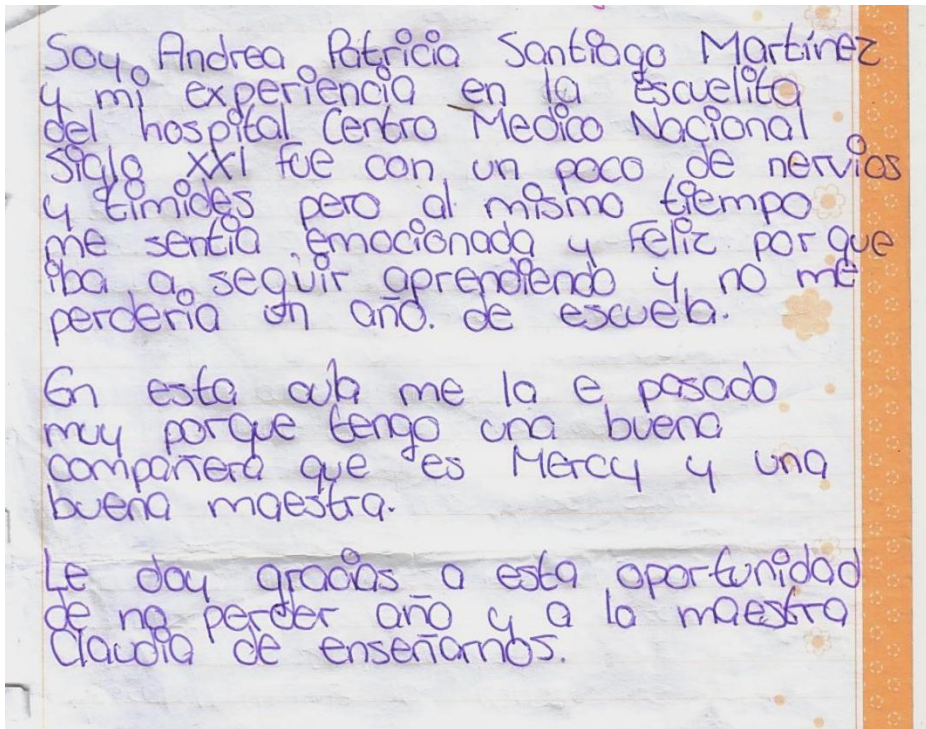 Soy Andrea Patricia Santiago Martínez
y mi experiencia en la escuelita
del hospital Centro Medico Nacional
Siglo XXI fue con un poco de nervios
y timides pero al mismo tiempo
me sentia emocionada y feliz porque
iba a seguir aprendiendo y no me
perderia un año. de escuela.
En esta aula me la e pasado
muy porque tengo una buena
compañera que es Mercy y una
buena maestra.
Le doy gracias a esta oportunidad
de no perder año y a la maestra
Claudia de enseñarnos.